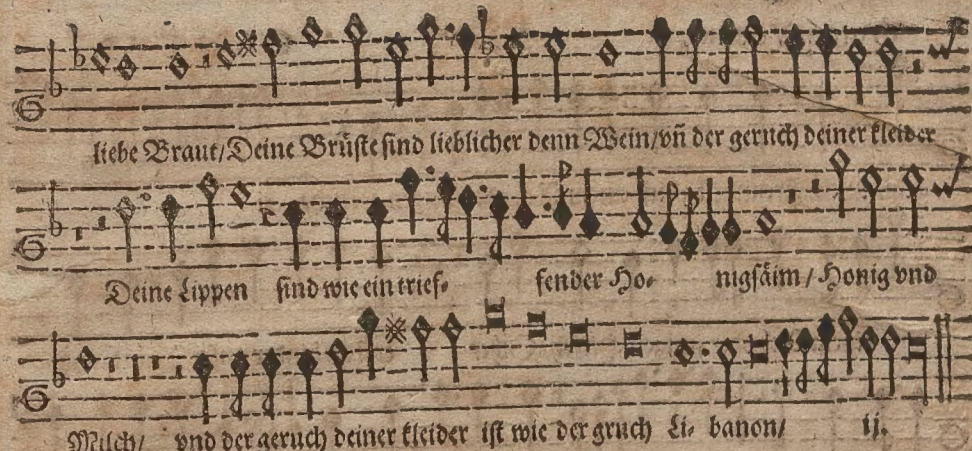 liebe Braut/Deine Brüste sind lieblicher denn Wein/vñ der geruch deiner kleider
Deine Lippen sind wie ein trief- fender Ho- nigsäim/Honig vnd
Milch/ vnd der geruch deiner kleider ist wie der gruch Li- banon/ ij.